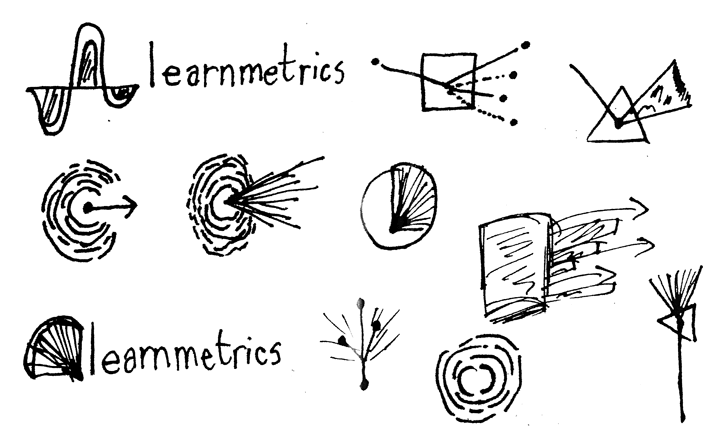 learnmetrics
learnmetrics